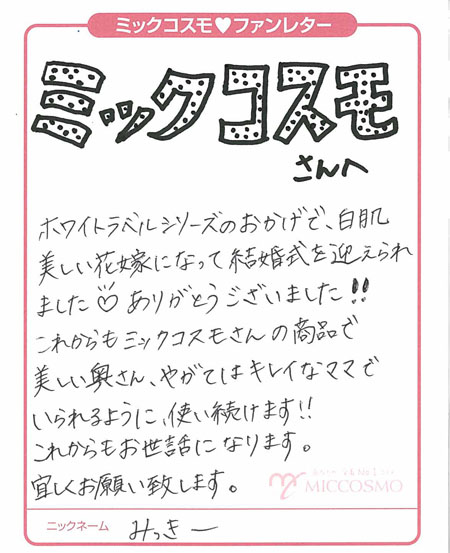 ミックコスモ♥ファンレター
ミックコスモ
さんへ
ホワイトラベルシリーズのおかげで、白肌
美しい花嫁になって結婚式を迎えられ
ました♡ありがとうございました!!
これからもミックコスモさんの商品で
美しい奥さん、やがてはキレイなママで
いられるように、使い続けます!!
これからもお世話になります。
宜しくお願い致します。
MICCOSMO
ニックネーム みっきー